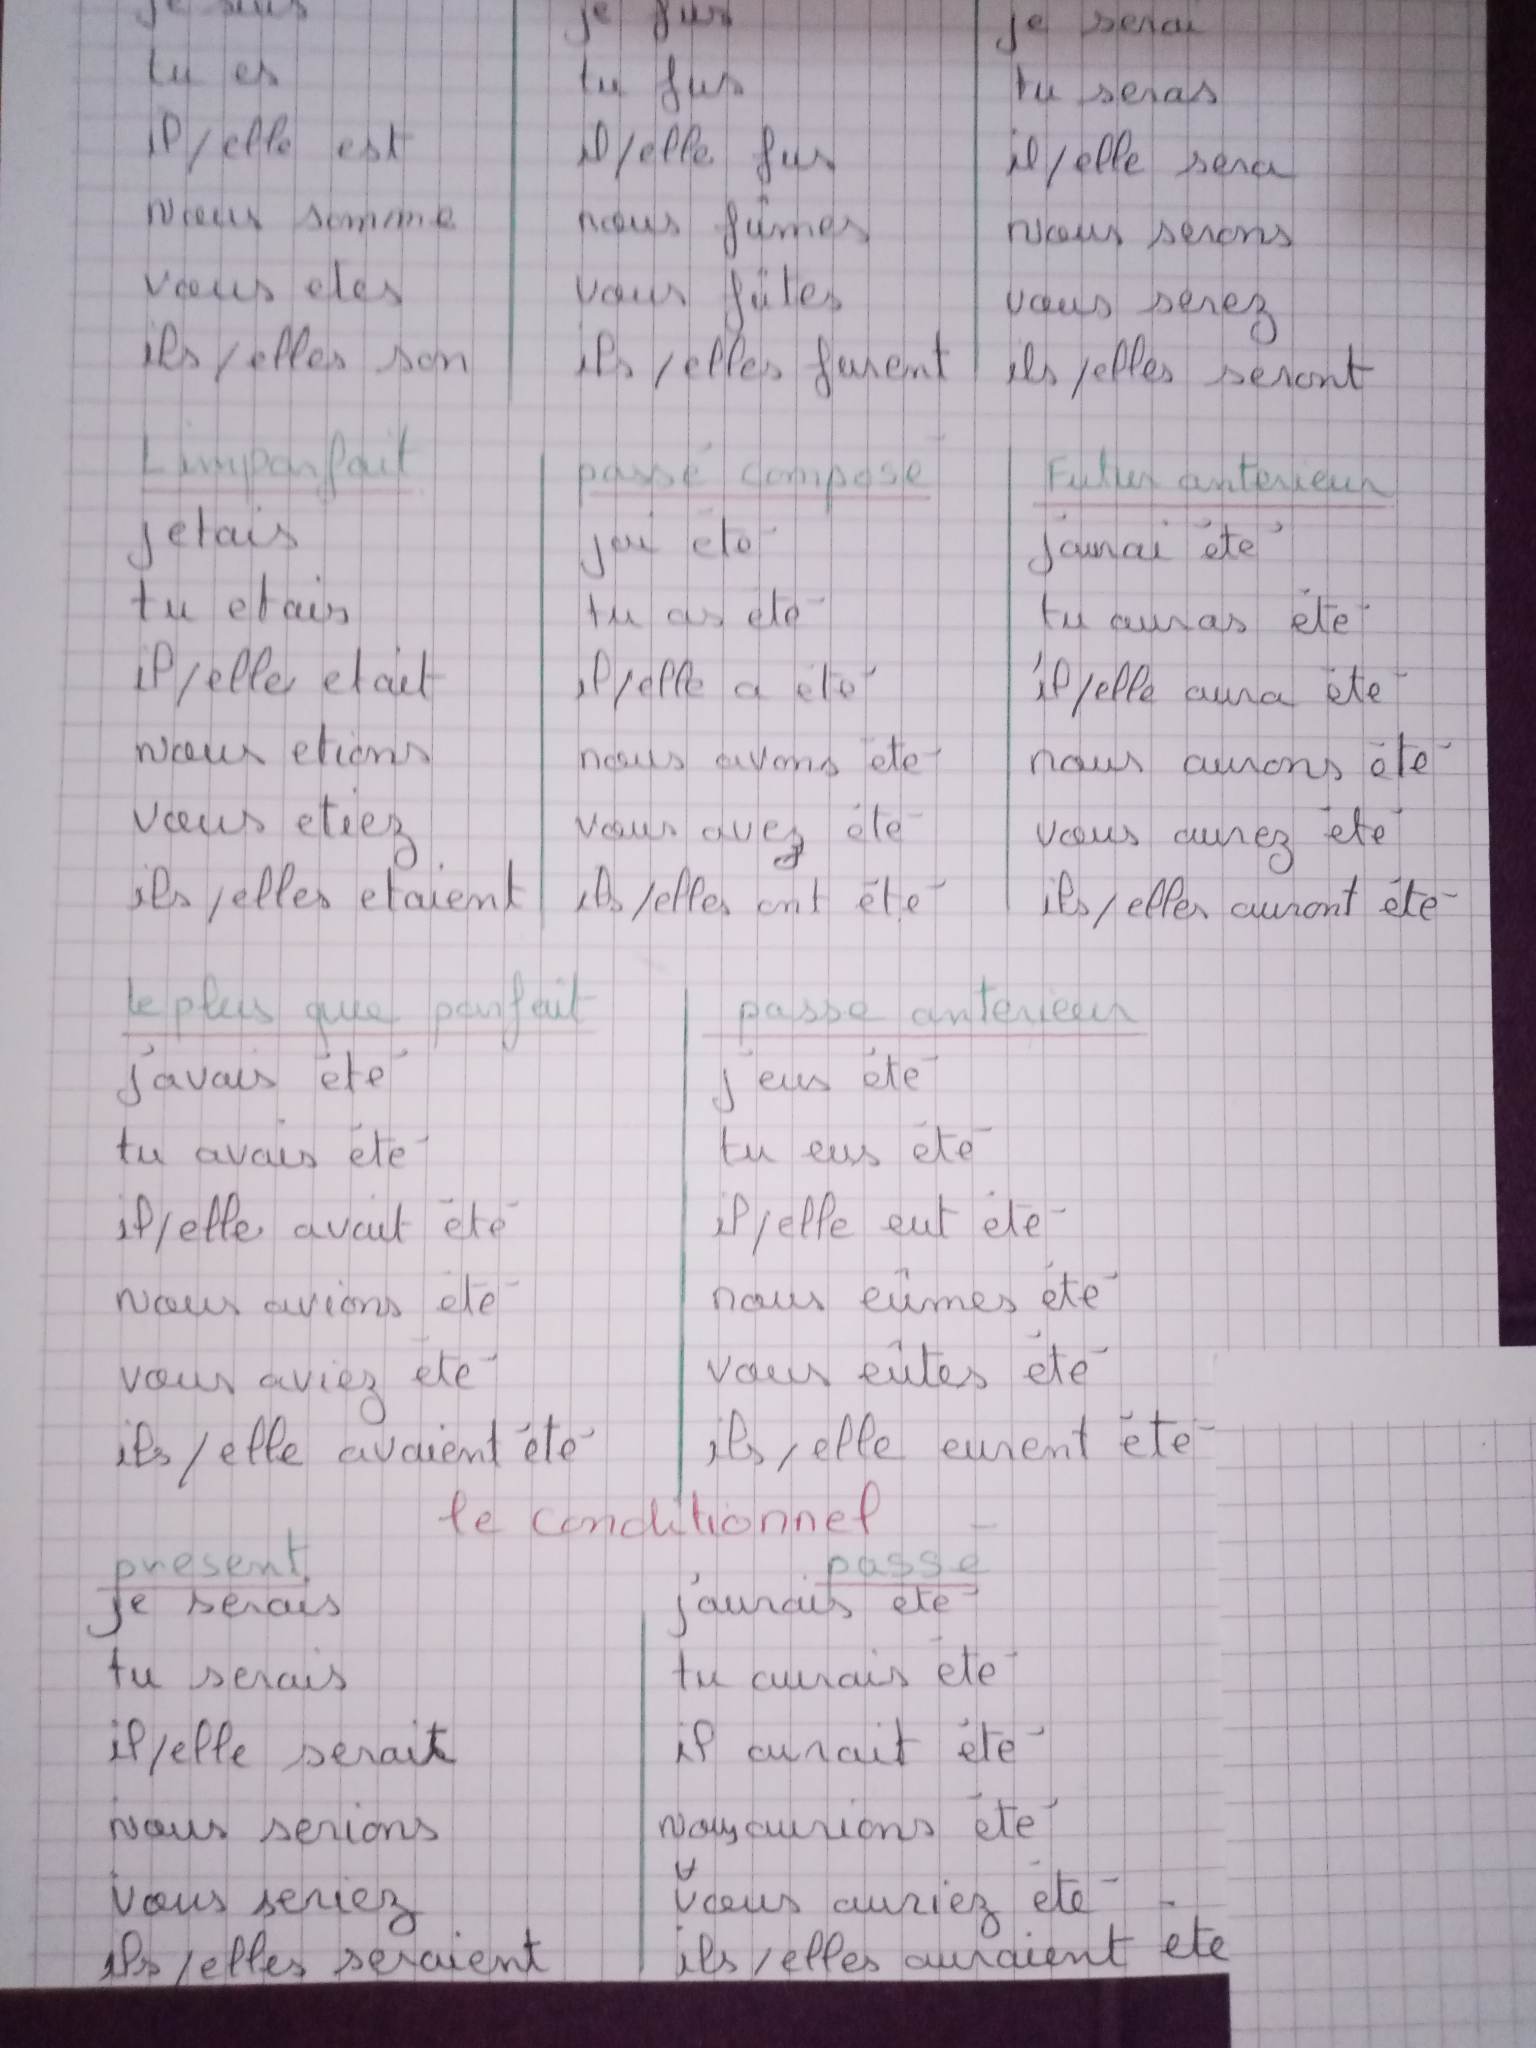 je suis je fus je serai
tu es tu fus tu seras
il/elle est il/elle fus il/elle sera
nous somme nous fûmes nous serons
vous etes vous fûtes vous serez
ils/elles son ils/elles furent ils/elles seront
L'imparfait passé composé Futur anterieur
jetais jai été j'aurai été
tu etais tu as été tu auras été
il/elle etait il/elle a été il/elle aura été
nous etions nous avons été nous aurons été
vous etiez vous avez été vous aurez été
ils/elles etaient ils/elles ont été ils/elles auront été
le plus que parfait passe anterieur
j'avais été j'eus été
tu avais été tu eus été
il/elle avait été il/elle eut été
nous avions été nous eûmes été
vous aviez été vous eûtes été
ils/elle avaient été ils/elle eurent été
le conditionnel
present passé
je serais j'aurais été
tu serais tu aurais été
il/elle serait il aurait été
nous serions nous aurions été
vous seriez vous auriez été
ils/elles seraient ils/elles auraient été